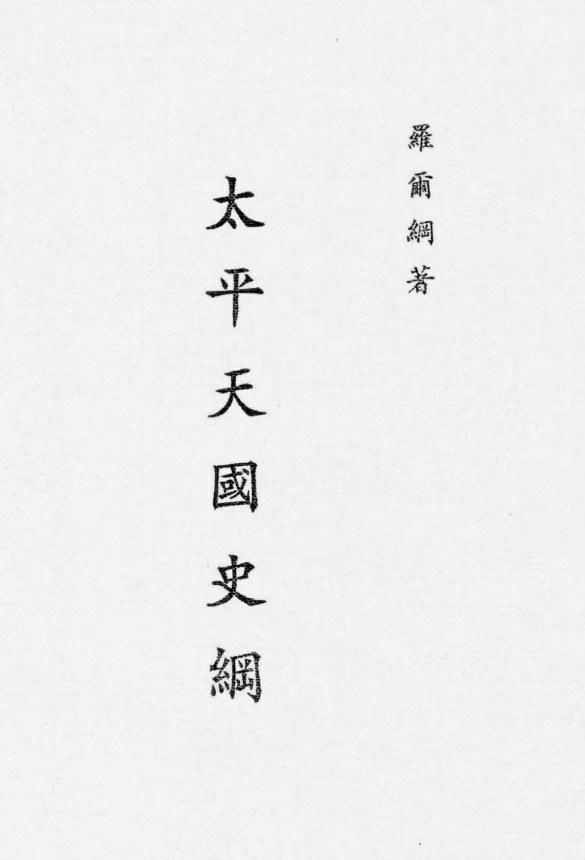 羅爾綱著
太平天國史綱